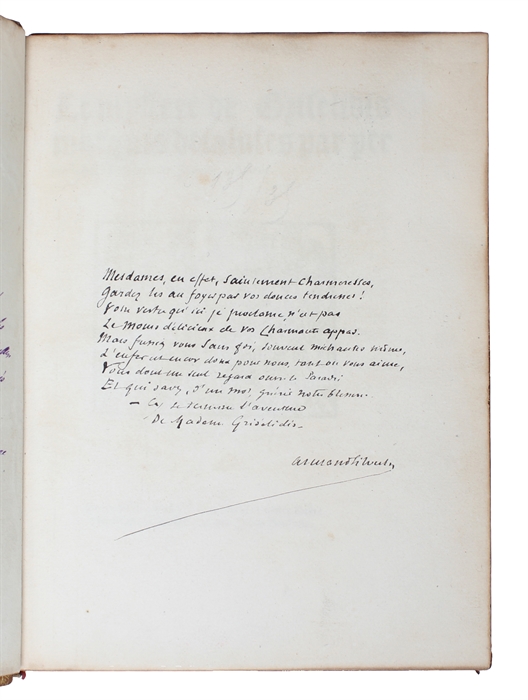 Mesdames, en effet, saintement charmeresses,
Gardez les au foyer par vos douces tendresses!
Votre vertu qu'ici je proclame n'est pas
Le moins délicieux de vos charmants appas.
Mais fussiez vous sans foi, souvent méchantes même,
L'enfer est encor doux pour nous, tant on vous aime,
Vous dont un seul regard ouvre le Paradis
Et qui savez, d'un mot, guérir notre
Madame Griselidis
Armand Silvestre